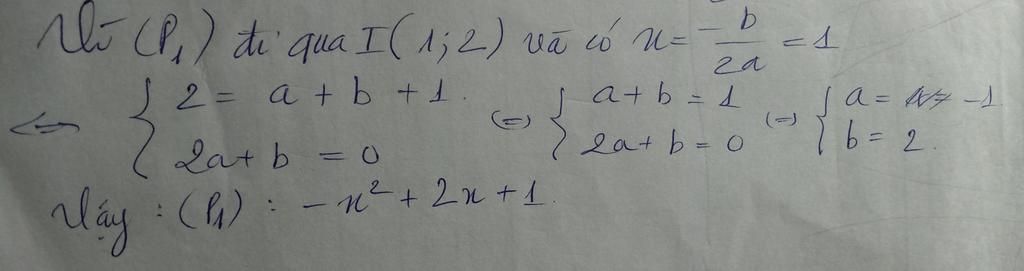 Vì (P₁) đi qua I(1;2) và có x = -b/2a = 1
<=> { 2 = a + b + 1. 2a + b = 0 (=) { a + b = 1 2a + b = 0 (=) { a = -1 b = 2.
Vậy : (P₁) : -x² + 2x + 1.